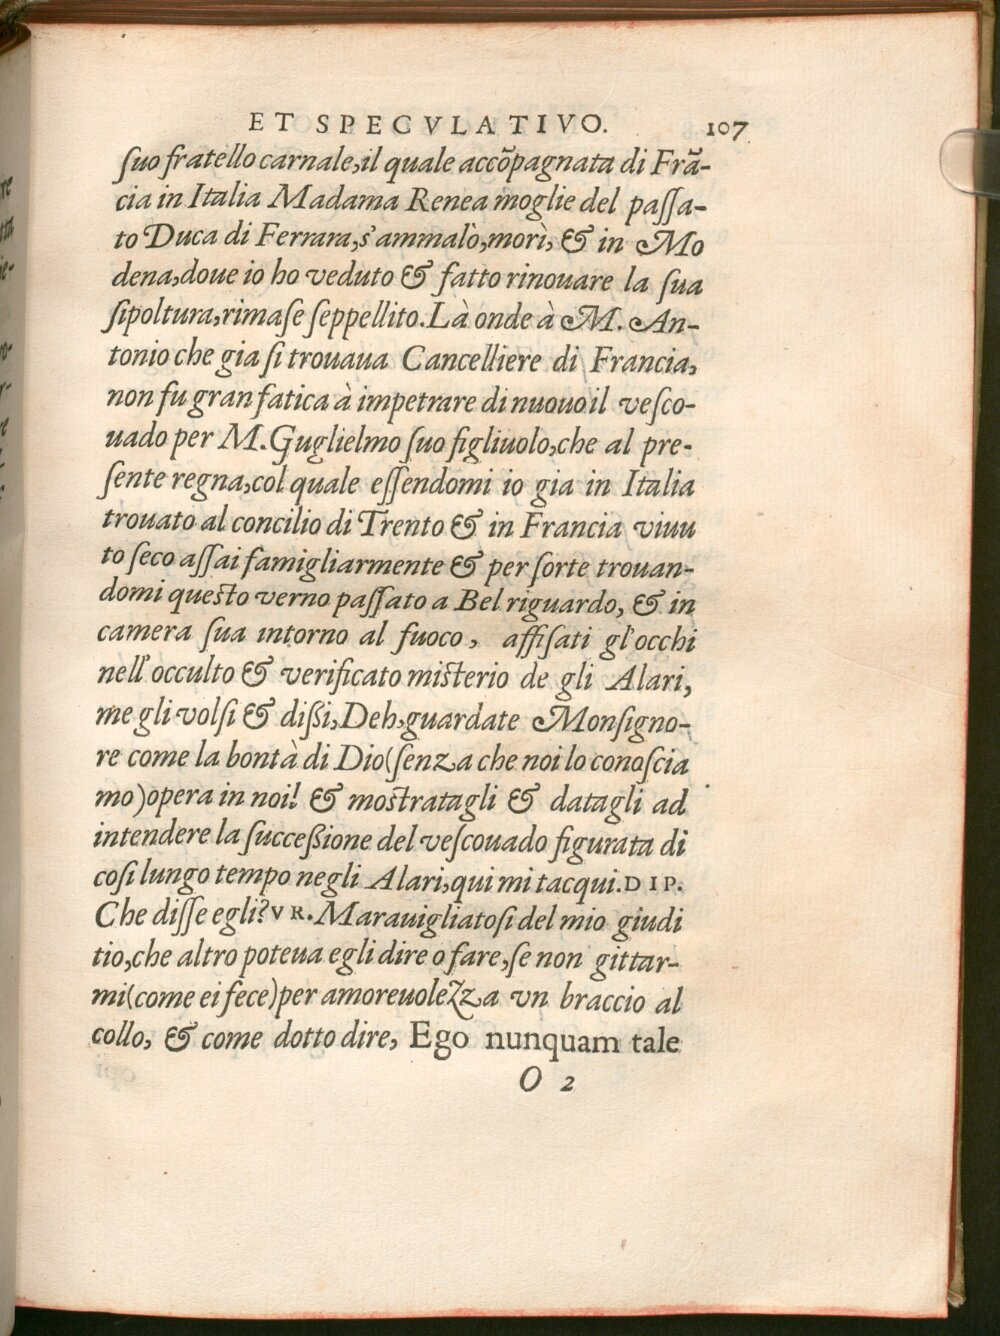 ET SPECVLATIVO. 107
ſuo fratello carnale, il quale accõpagnata di Frã-
cia in Italia Madama Renea moglie del paſſa-
to Duca di Ferrara, s'ammalò, morì, & in Mo
dena, doue io ho veduto & fatto rinouare la ſua
ſipoltura, rimaſe ſeppellito. Là onde à M. An-
tonio che gia ſi trouaua Cancelliere di Francia,
non fu gran fatica à impetrare di nuouo il veſco-
uado per M. Guglielmo ſuo figliuolo, che al pre-
ſente regna, col quale eſſendomi io gia in Italia
trouato al concilio di Trento & in Francia viuu
to ſeco aſſai famigliarmente & per ſorte trouan-
domi queſto verno paſſato a Bel riguardo, & in
camera ſua intorno al fuoco, affiſati gl'occhi
nell'occulto & verificato miſterio de gli Alari,
me gli volſi & dißi, Deh, guardate Monſigno-
re come la bontà di Dio (ſenza che noi lo conoſcia
mo) opera in noi! & moſtratagli & datagli ad
intendere la ſucceßione del veſcouado figurata di
coſi lungo tempo negli Alari, qui mi tacqui. DIP.
Che diſſe egli? VR. Marauigliatoſi del mio giudi
tio, che altro poteua egli dire o fare, ſe non gittar-
mi (come ei fece) per amoreuolezza vn braccio al
collo, & come dotto dire, Ego nunquam tale
O 2